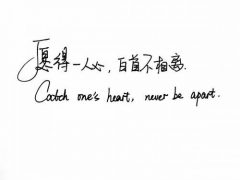 愿得一人心，白首不相离.
Catch one's heart, never be apart.